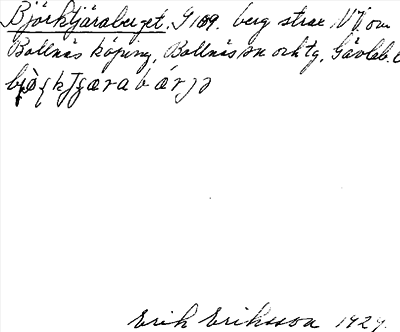 Björktjäraberget. G 109. berg strax NV om
Bollnäs köping, Bollnäs sn och tg. Gävleb. l
Erik Eriksson 1929.